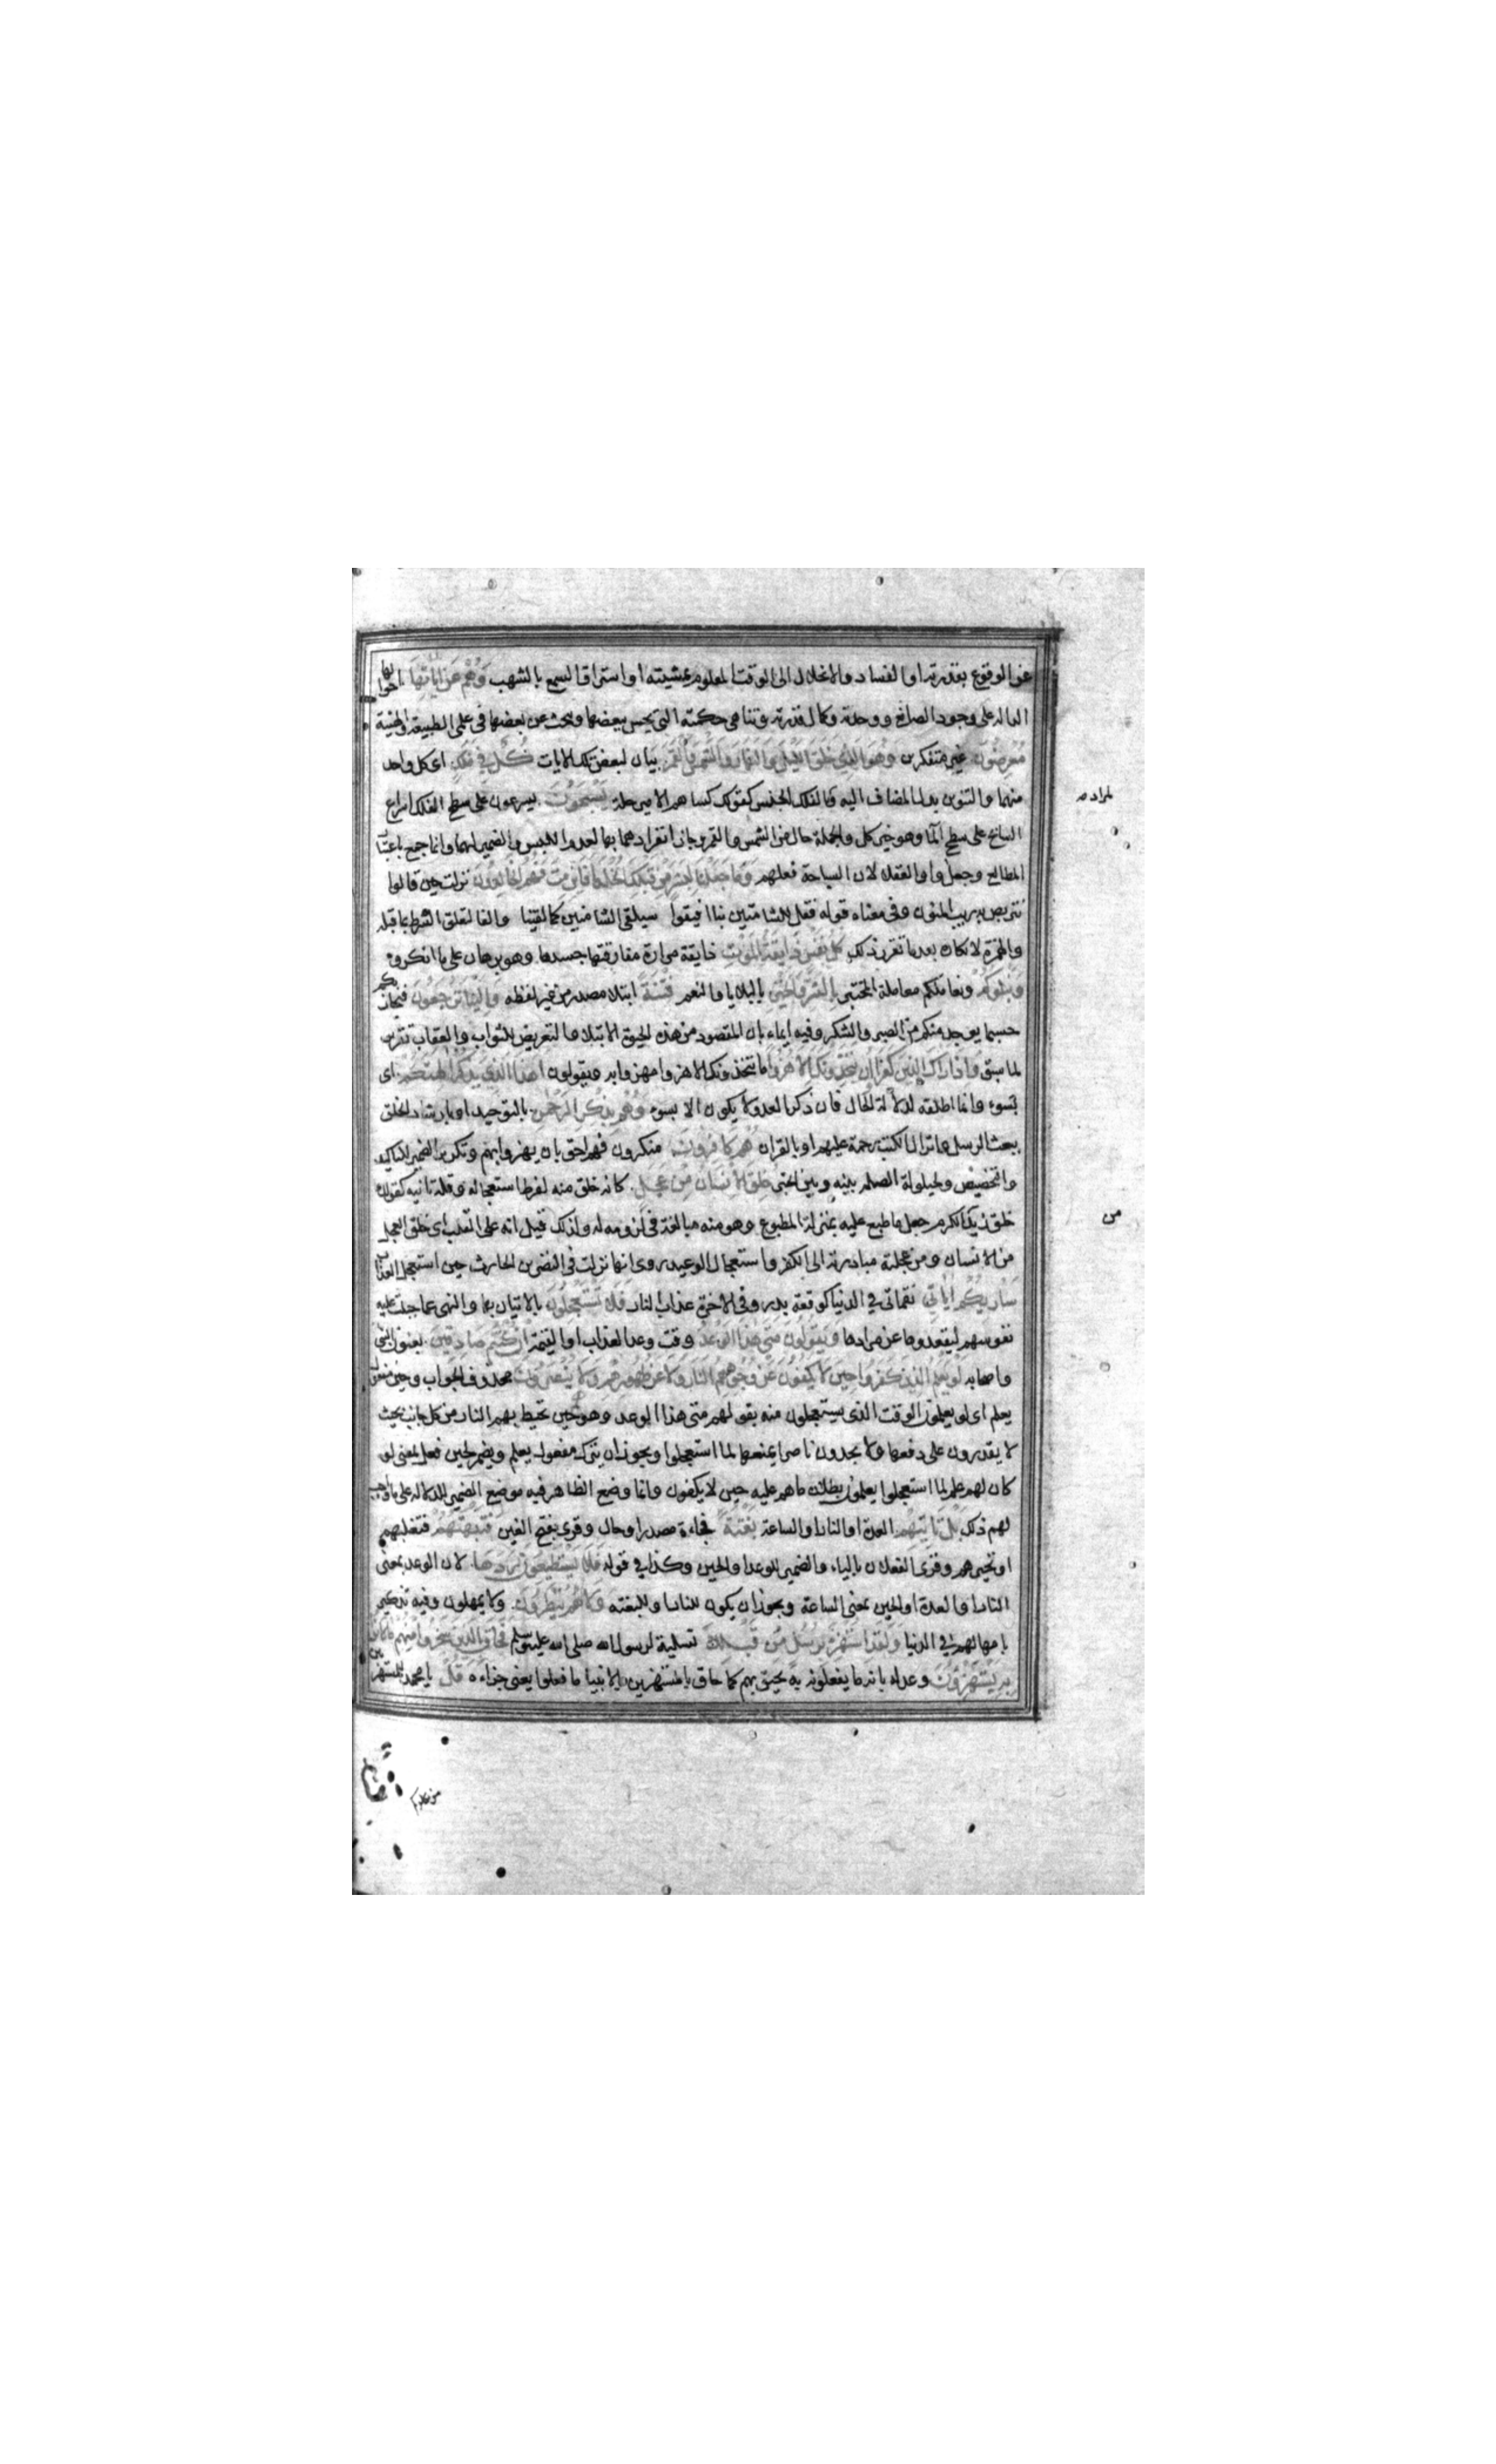 عن الوقوع بقدرته او الفساد والانحلال الى الوقت المعلوم بمشيئته او استراق السمع بالشهب وهم عن اياتها احوالها
الدالة على وجود الصانع ووحدته وكمال قدرته وتناهى حكمته التى يحس ببعضها وبحث عن بعضها فى علمى الطبيعة والهيئة
معرضون غير متفكرين وهو الذى خلق الليل والنهار والشمس والقمر بيان لبعض تلك الايات كل فى فلك اى كل واحد
منهما والتنوين بدل المضاف اليه والفلك الجنس كقولك كساهم الامير حلة يسبحون يسرعون على سطح الفلك اسراع
السابح على سطح الما وهو خبر كل والجملة حال من الشمس والقمر وجاز انفرادهما بها لعدم اللبس والضمير لهما وانما جمع باعتبار
المطالع وجعل واو العقلا لان السباحة فعلهم وما جعلنا لبشر من قبلك الخلد افاين مت فهم الخالدون نزلت حين قالوا
نتربص به ريب المنون وفى معناه قوله فقل للشامتين بنا افيقوا سيلقى الشامتين كما لقينا والفا لتعلق الشرط بما قبله
والهمزة لانكاره بعدما تقرر ذلك كل نفس ذايقة الموت ذايقة مرارة مفارقتها جسدها وهو برهان على ما انكروه
ونبلوكم ونعاملكم معاملة المختبر بالشر والخير بالبلايا والنعم فتنة ابتلا مصدر من غير لفظه والينا ترجعون فيجازيكم
حسبما يوجد منكم من الصبر والشكر وفيه ايماء بان المقصود من هذه الحيوة الابتلا والتعريض للثواب والعقاب تقرير
لما سبق واذا راك الذين كفروا ان يتخذونك الا هزوا ما يتخذونك الا هزوا مهزوا به ويقولون اهذا الذى يذكر الهتكم اى
بسوء وانما اطلقه لدلالة الحال فان ذكر العدو لا يكون الا بسوء وهم بذكر الرحمن بالتوحيد او بارشاد الخلق
ببعث الرسل وانزال الكتب رحمة عليهم او بالقران هم كافرون منكرون فهم احق بان يهزوا بهم وتكرير الضمير للتاكيد
والتخصيص ولحيلولة الصلة بينه وبين الخبر خلق الانسان من عجل كانه خلق منه لفرط استعجاله وقلة تانيه كقولك
خلق زيد من الكرم جعل ما طبع عليه بمنزلة المطبوع وهو منه مبالغة فى لزومه له ولذلك قيل انه على القلب اى خلق العجل
من الانسان ومن عجلته مبادرته الى الكفر واستعجال الوعيد روى انها نزلت فى النضر بن الحارث حين استعجل العذاب
ساريكم اياتى نقماتى فى الدنيا كوقعة بدر وفى الاخرة عذاب النار فلا تستعجلون بالاتيان بها والنهى عما جبلت عليه
نفوسهم ليقعدوها عن مرادها ويقولون متى هذا الوعد وقت وعد العذاب او القيمة ان كنتم صادقين يعنون النبى
واصحابه لو يعلم الذين كفروا حين لا يكفون عن وجوههم النار ولا عن ظهورهم ولا ينصرون محذوف الجواب وحين مفعول
يعلم اى لو يعلمون الوقت الذى يستعجلون منه بقولهم متى هذا الوعد وهو حين تحيط بهم النار من كل جانب بحيث
لا يقدرون على دفعها ولا يجدون ناصرا يمنعها لما استعجلوا ويجوز ان يترك مفعول يعلم ويضمر لحين فعل بمعنى لو
كان لهم علم لما استعجلوا يعلمون بطلان ما هم عليه حين لا يكفون وانما وضع الظاهر فيه موضع الضمير للدلالة على ما اوجب
لهم ذلك بل تاتيهم العدة او النار او الساعة بغتة فجاءة مصدر او حال وقرى بفتح الغين فتبهتهم فتغلبهم
او تحيرهم وقرى الفعلان بالياء والضمير للوعد او الحين وكذا فى قوله فلا يستطيعون ردها لان الوعد بمعنى
النار او العدة او الحين بمعنى الساعة ويجوز ان يكون للنار او للبغتة ولا هم ينظرون ولا يمهلون وفيه تذكير
بامهالهم فى الدنيا ولقد استهزئ برسل من قبلك تسلية لرسول الله صلى الله عليه وسلم فحاق بالذين سخروا منهم ما كانوا
به يستهزؤن وعد له بان ما يفعلونه به يحيق بهم كما حاق بالمستهزين بالانبيا ما فعلوا يعنى جزاءه قل يا محمد للمستهزين
من